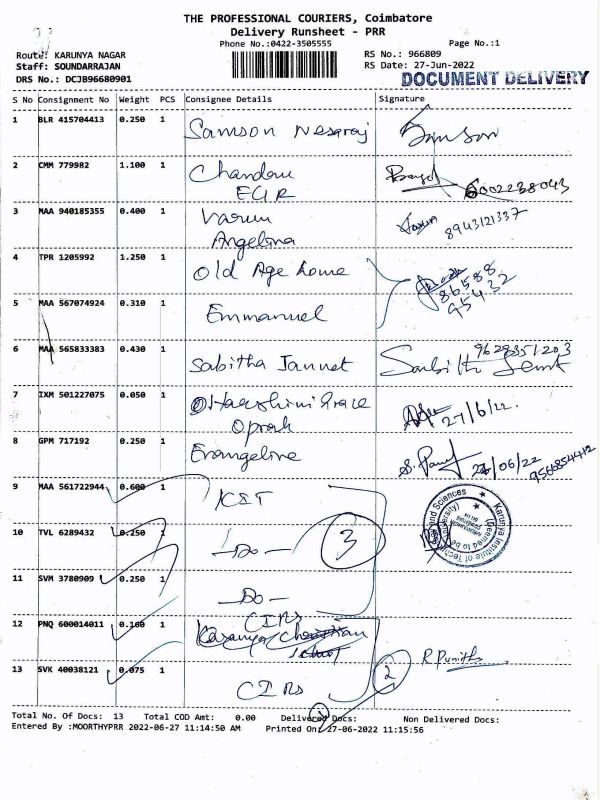 THE PROFESSIONAL COURIERS, Coimbatore
Delivery Runsheet - PRR
Phone No.:0422-3505555 Page No.:1
Route: KARUNYA NAGAR RS No.: 966809
Staff: SOUNDARRAJAN RS Date: 27-Jun-2022
DRS No.: DCJB96680901 DOCUMENT DELIVERY
S No Consignment No Weight PCS Consignee Details Signature
1 BLR 415704413 0.250 1 Samson Nesaraj Samson
2 CMM 779982 1.100 1 Chandan 6002238043
EGR
3 MAA 940185355 0.400 1 Varun 8943121337
Angelina
4 TPR 1205992 1.250 1 Old Age home 86588
95432
5 MAA 567074924 0.310 1 Emmanuel
6 MAA 565833383 0.430 1 Sabitha Jannet 9629351203
7 IXM 501227075 0.050 1 27/6/22
Oprah
8 GPM 717192 0.250 1 Evangeline /06/22 9566854412
9 MAA 561722944 0.600 1 KST
10 TVL 6289432 0.250 1 -Do- 3
11 SVM 3780909 0.250 1 -Do-
12 PNQ 600014011 0.160 1 CIRs
Karunya Christian
School
13 SVK 40038121 0.075 1 CIRs 2 R Punitha
Total No. Of Docs: 13 Total COD Amt: 0.00 Delivered Docs: Non Delivered Docs:
Entered By :MOORTHYPRR 2022-06-27 11:14:50 AM Printed On: 27-06-2022 11:15:56